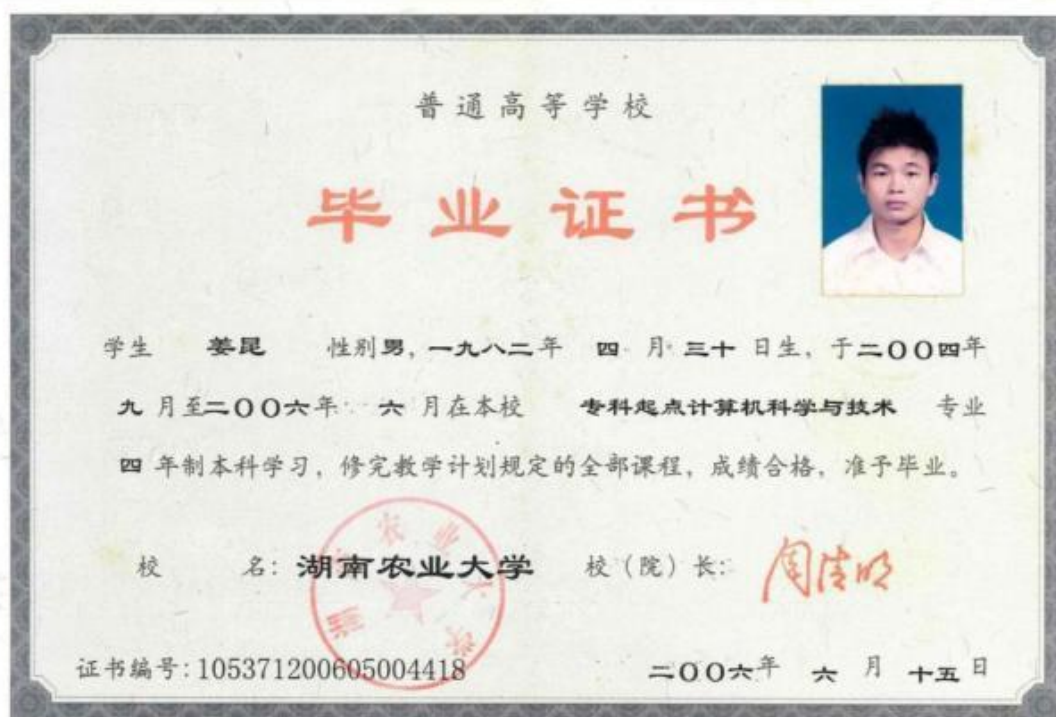 普通高等学校
毕业证书
学生 姜昆 性别男，一九八二年 四 月 三十 日生，于二〇〇四年
九 月至二〇〇六年 六 月在本校 专科起点计算机科学与技术 专业
四 年制本科学习，修完教学计划规定的全部课程，成绩合格，准予毕业。
校 名：湖南农业大学 校（院）长：周清明
证书编号：105371200605004418 二〇〇六年 六 月 十五 日